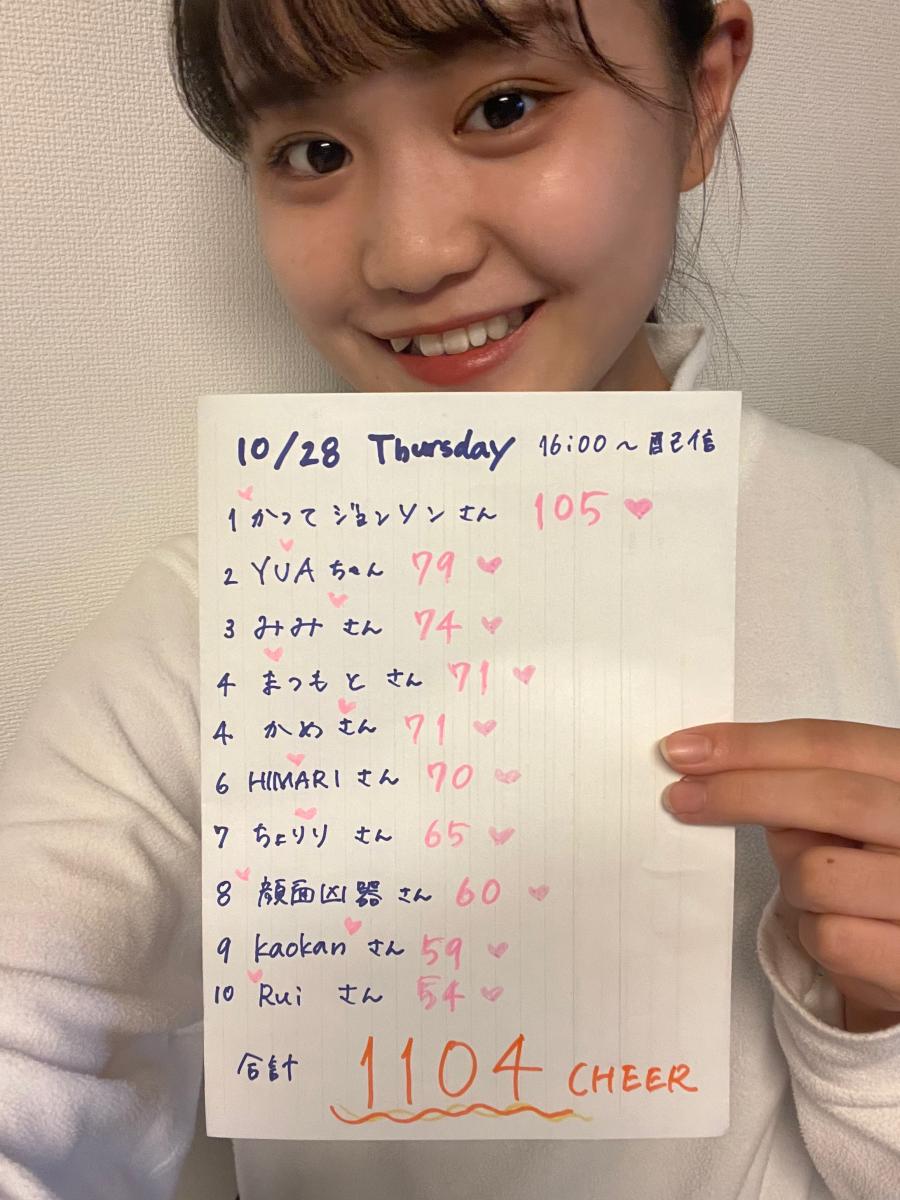 10/28 Thursday 16:00～配信
1 かってジョンソンさん 105
2 YUAちゃん 79
3 みみさん 74
4 まつもとさん 71
4 かめさん 71
6 HIMARIさん 70
7 ちょりりさん 65
8 顔面凶器さん 60
9 kaokanさん 59
10 Ruiさん 54
合計 1104 CHEER